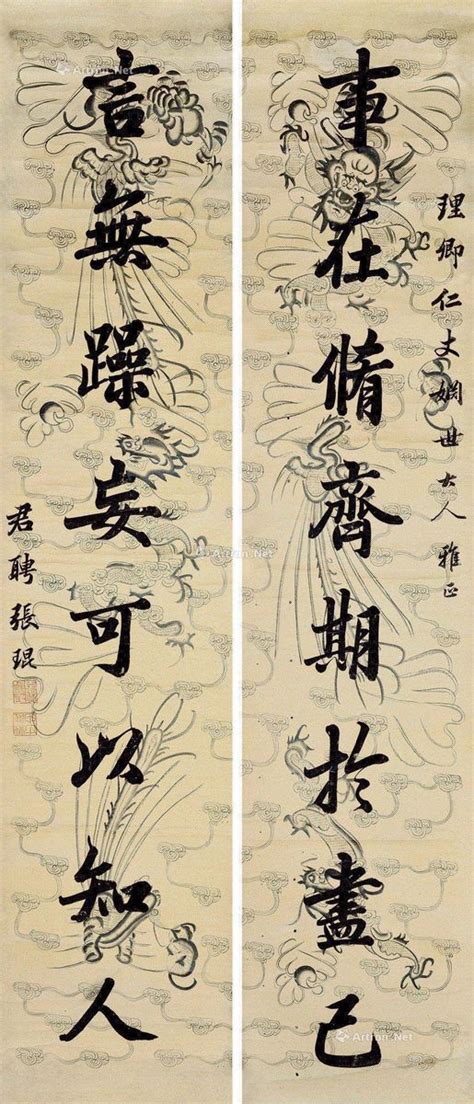 理卿仁丈婣世大人 雅正
事在脩齊期於盡己
言無躁妄可以知人
君聘張琨
Artron.Net
Artron.Net
Artron.Net